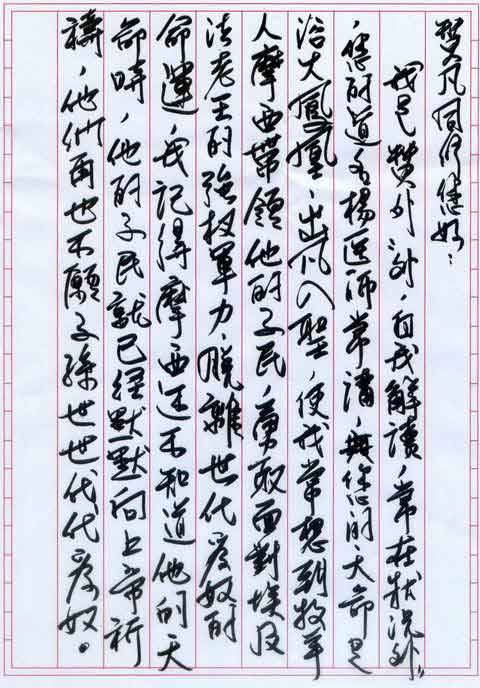 凡同修您好：
我是 外，自我解讀，常在狀況外"
，您的道名楊 師常講， 您的天命是
浴火鳳凰，出凡入聖，使我常想到牧羊
人摩西帶領他的子民，勇敢面對埃及
法老王的強权軍力，脫離世代為奴的
命運，我記得摩西還不知道他的天
命時，他的子民就已經默默向上帝祈
禱，他們再也不願子孫世世代代為奴。